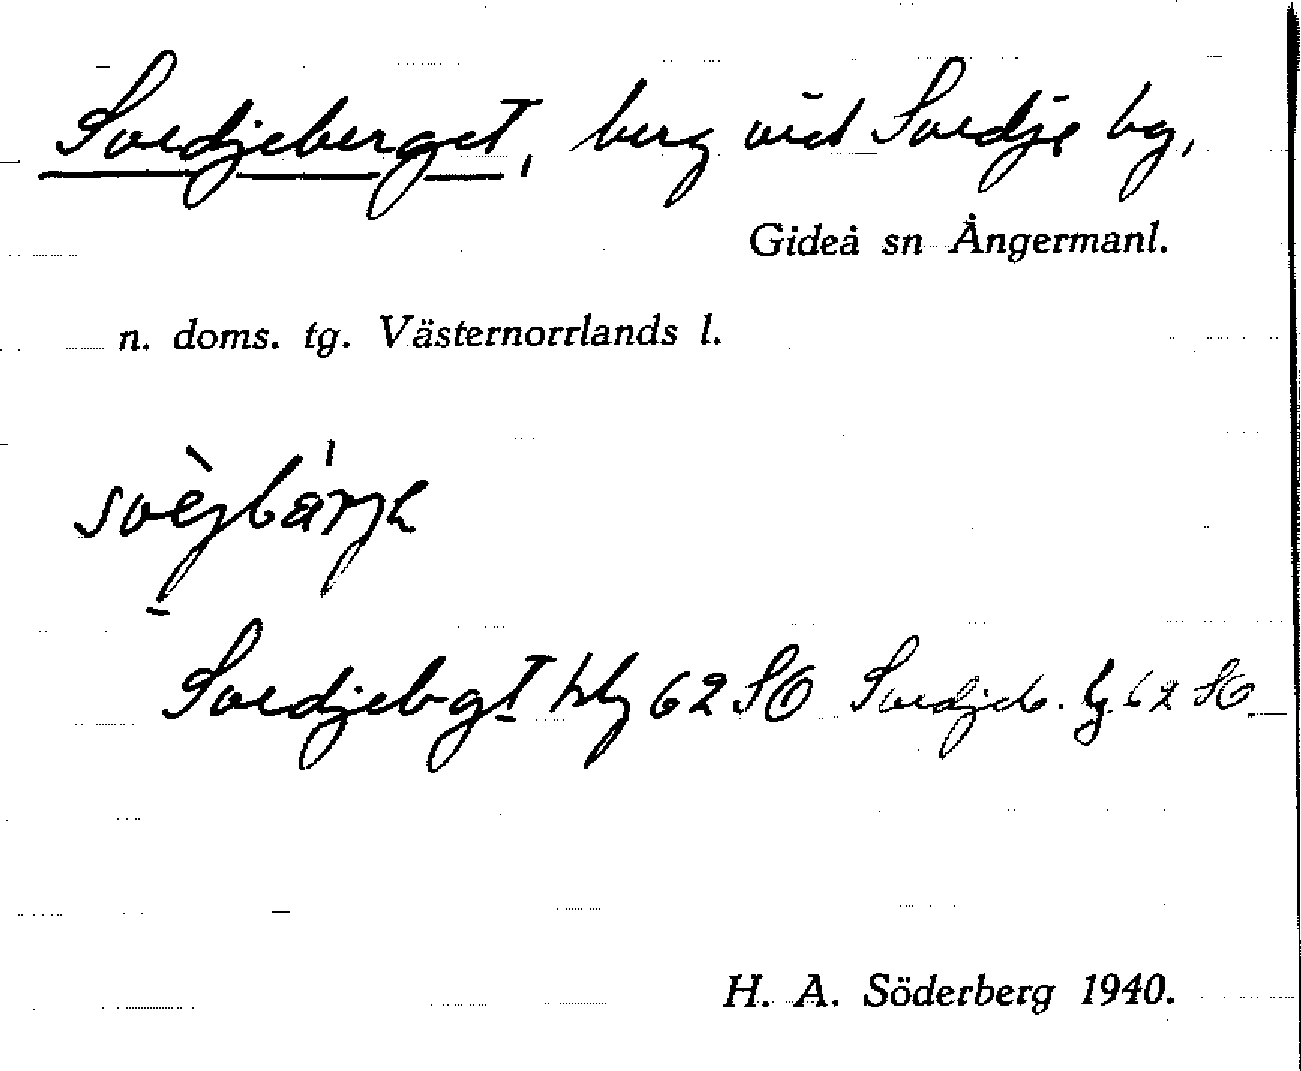 Svedjeberget, berg vid Svedje bg,
Gideå sn Ångermanl.
n. doms. tg. Västernorrlands l.
svèjbárje
Svedjebgt 62 SO Svedjeb. 62 SO
H. A. Söderberg 1940.